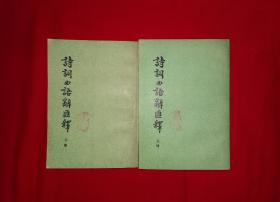 詩詞曲語辭匯釋
上册
詩詞曲語辭匯釋